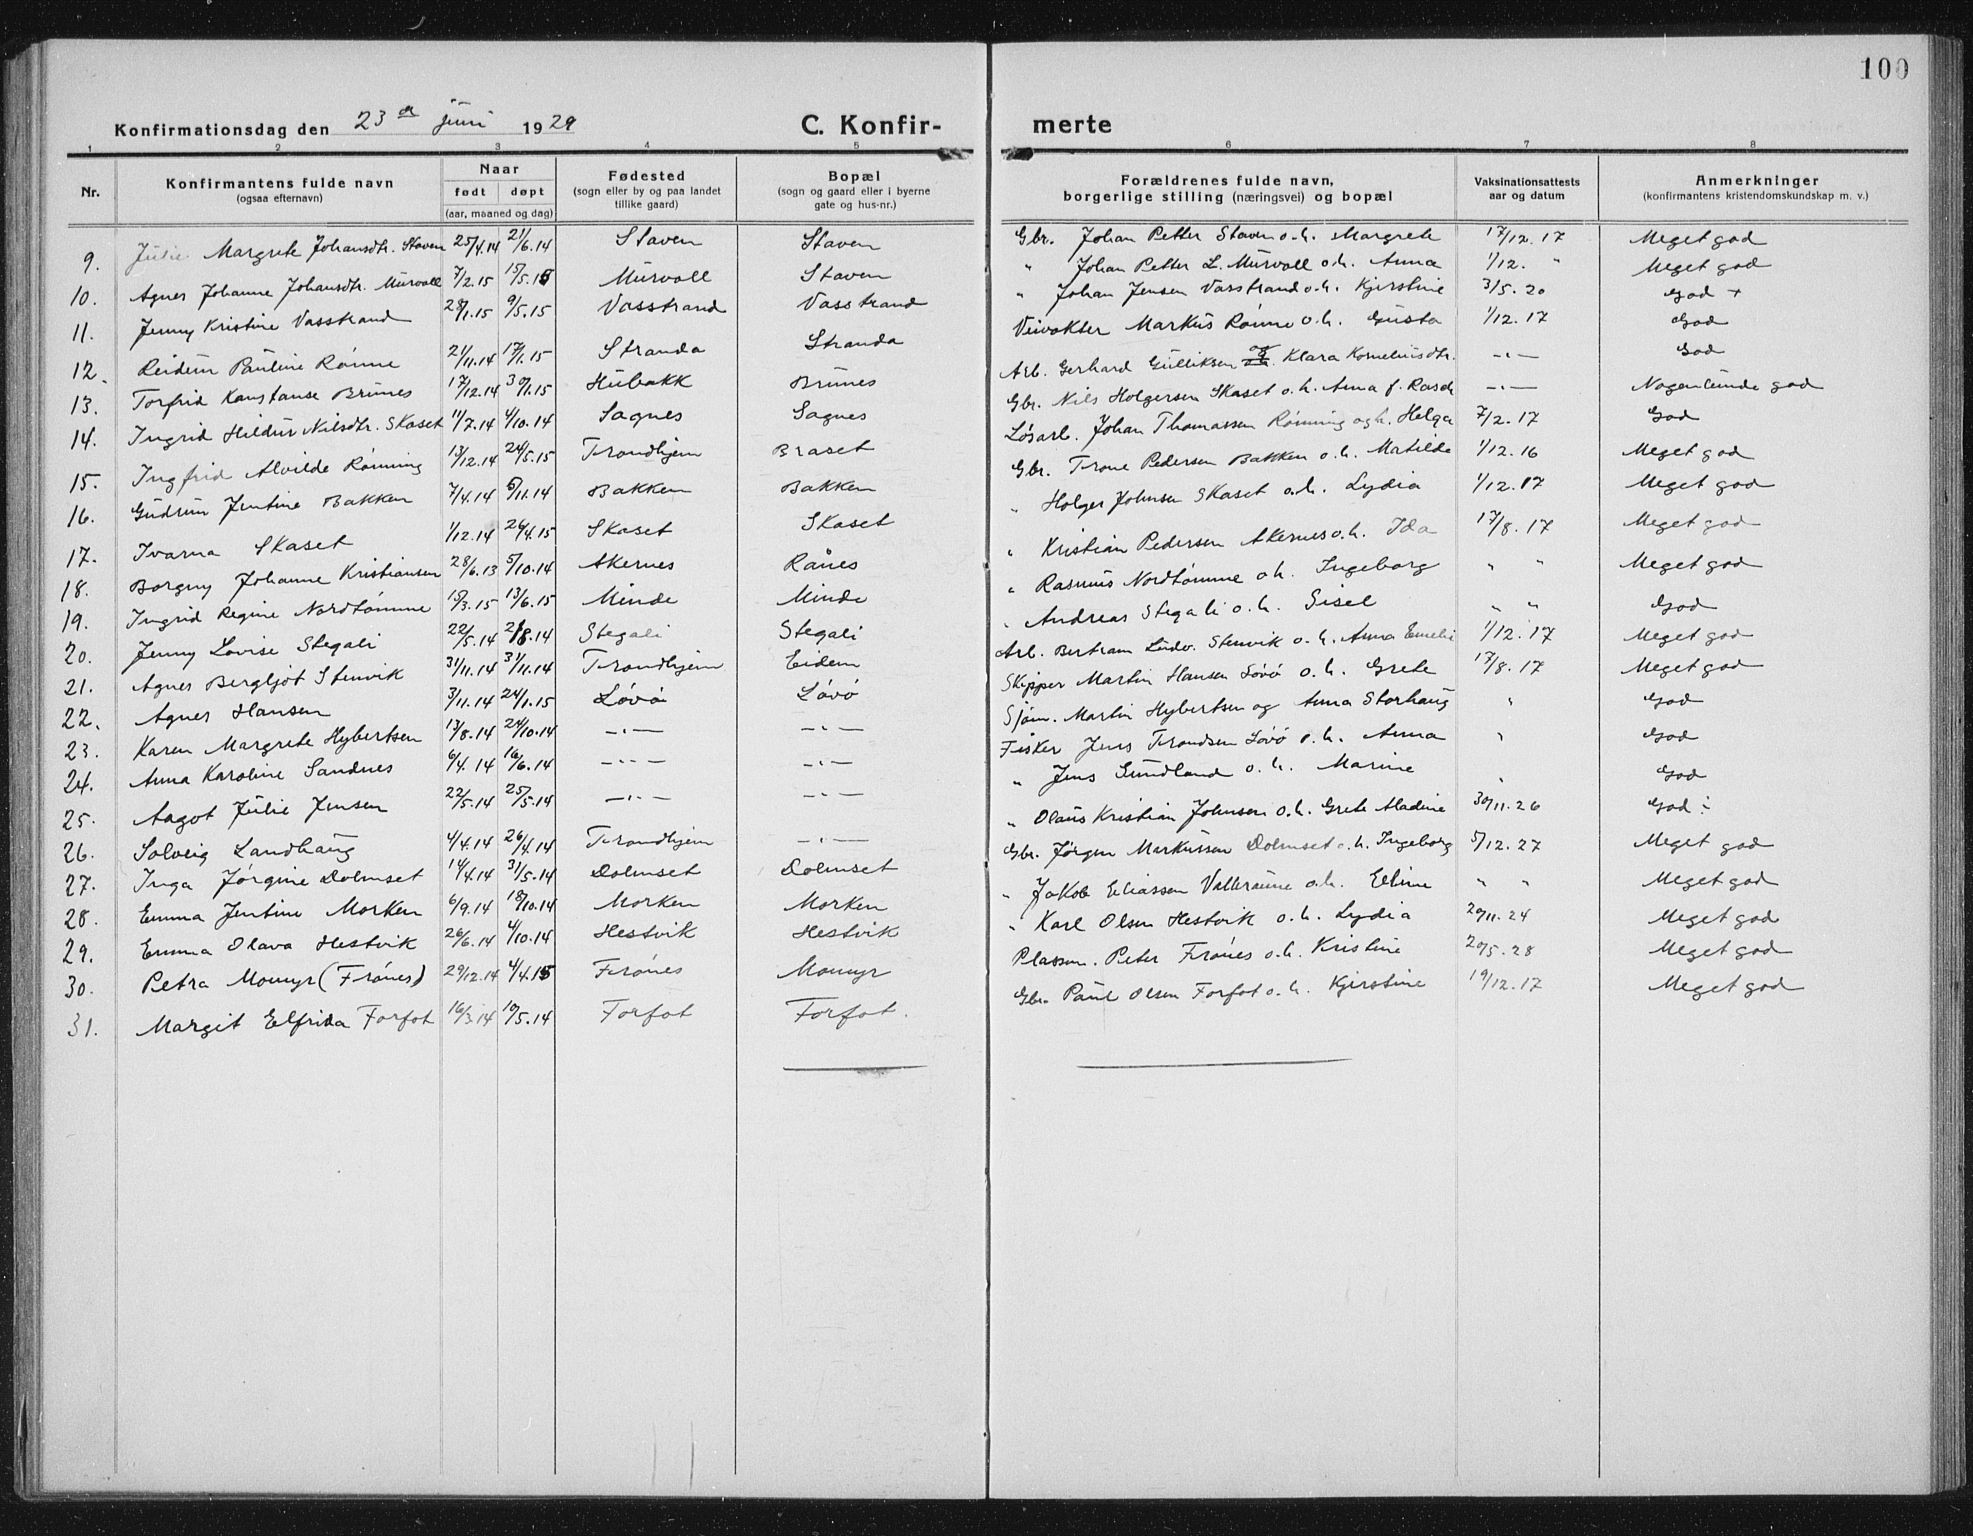 100
Konfirmationsdag den 23de juni 1929 C. Konfir- merte
1 2 3 4 5 6 7 8
Nr. Konfirmantens fulde navn (ogsaa efternavn) Naar født døpt (aar, maaned og dag) Fødested (sogn eller by og paa landet tillike gaard) Bopæl (sogn og gaard eller i byerne gate og hus-nr.) Forældrenes fulde navn, borgerlige stilling (næringsvei) og bopæl Vaksinationsattests aar og datum Anmerkninger (konfirmantens kristendomskundskap m. v.)
9. Julie Margrete Johansdtr. Staven 25/4.14 21/6.14 Staven Staven Gbr. Johan Petter Staven o.h. Margrete 17/12.17 Meget god
10. Agnes Johanne Johansdtr. Murvoll 7/2.15 15/5.15 Murvoll Staven " Johan Petter L. Murvoll o.h. Anna 1/12. " Meget god
11. Jenny Kristine Vasstrand 28/1.15 9/5.15 Vasstrand Vasstrand " Johan Jensen Vasstrand o.h. Kjerstine 3/5.20 God +
12. Reidun Pauline Rønne 21/11.14 17/1.15 Stranda Stranda Veivokter Markus Rønne o.h. Gusta 1/12.17 God
13. Torfrid Konstanse Brunes 17/12.14 30/1.15 Hubakk Brunes Arb. Gerhard Gulliksen og Klara Korneliusdtr. -"- God
14. Ingrid Hildur Nilsdtr. Skaset 11/7.14 4/10.14 Sagnes Sagnes Gbr. Nils Holgersen Skaset o.h. Anna f. -"- Nogenlunde god
15. Ingfrid Alvilde Rønning 13/12.14 24/5.15 Trondhjem Braset Løsarb. Johan Thomassen Rønning og h. Helga 7/2.17 God
16. Gudrun Jentine Bakken 7/4.14 5/11.14 Bakken Bakken Gbr. Trone Pedersen Bakken o.h. Matilde 1/12.16 Meget god
17. Ivarna Skaset 1/12.14 26/4.15 Skaset Skaset " Holger Johnsen Skaset o.h. Lydia 1/12.17 Meget god
18. Borgny Johanne Kristiansen 28/6.13 5/10.14 Akernes Rånes " Kristian Pedersen Akernes o.h. Ida 17/8.17 Meget god
19. Ingrid Regine Nordtømme 15/3.15 13/6.15 Minde Minde " Rasmus Nordtømme o.h. Ingeborg " " Meget god
20. Jenny Lovise Stegali 22/5.14 2/8.14 Stegali Stegali " Andreas Stegali o.h. Sisel " " God
21. Agnes Bergljot Stenvik 31/11.14 31/11.14 Trondhjem Eidem Arb. Bertram Ludv. Stenvik o.h. Anna Emelie 1/12.17 Meget god
22. Agnes Hansen 3/11.14 24/1.15 Løvø Løvø Skipper Martin Hansen Løvø o.h. Grete 17/8.17 Meget god
23. Karen Margrete Hybertsen 13/8.14 24/10.14 -"- -"- Sjøm. Martin Hybertsen og Anna Storhaug " God
24. Anna Karoline Sandnes 6/4.14 16/6.14 -"- -"- Fisker Jens Trondsen Løvø o.h. Anna " God
25. Aagot Julie Jensen 22/5.14 25/5.14 -"- -"- " Jens Sundland o.h. Marine " God
26. Solveig Landhaug 4/4.14 26/4.14 Trondhjem -"- " Olaus Kristian Johnsen o.h. Grete Aladine 30/11.26 God ÷
27. Inga Jørgine Dolmset 14/4.14 31/5.14 Dolmset Dolmset Gbr. Jørgen Markussen Dolmset o.h. Ingeborg 5/12.27 Meget god
28. Emma Jentine Morken 6/9.14 18/10.14 Morken Morken " Jakob Eliassen Vallersune o.h. Elline " " Meget god
29. Emma Olava Hestvik 26/6.14 4/10.14 Hestvik Hestvik " Karl Olsen Hestvik o.h. Lydia 20/11.24 Meget god
30. Petra Momyr (Frønes) 29/12.14 4/4.15 Frønes Momyr Plassm. Peter Frønes o.h. Kristine 20/5.28 Meget god
31. Margit Elfrida Forfot 16/3.14 10/5.14 Forfot Forfot. Gbr. Paul Olsen Forfot o.h. Kjerstine 19/12.17 Meget god